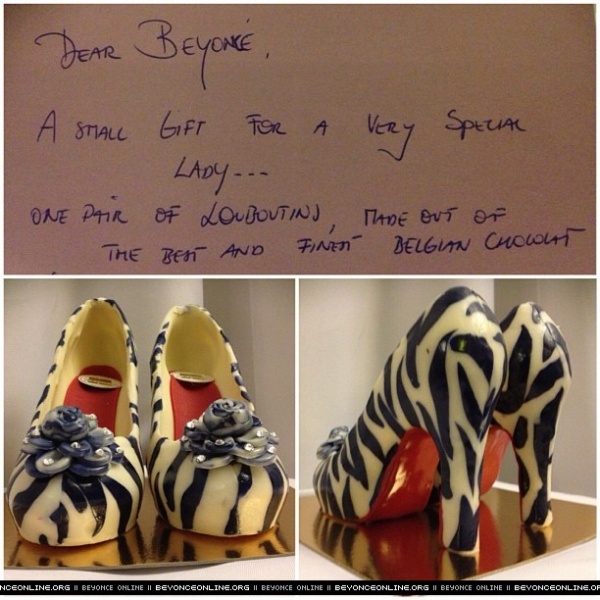 DEAR BEYONCÉ,
A SMALL GIFT FOR A VERY SPECIAL
LADY---
ONE PAIR OF LOUBOUTINS, MADE OUT OF
THE BEST AND FINEST BELGIAN CHOCOLAT
NCEONLINE.ORG || BEYONCE ONLINE || BEYONCEONLINE.ORG || BEYONCE ONLINE || BEYONCEONLINE.ORG || BEYONCE ONLINE || BEYONCEONLINE.ORG